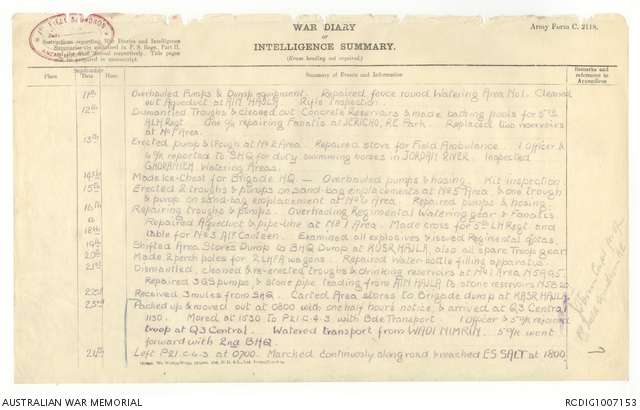 WAR DIARY
OR
INTELLIGENCE SUMMARY.
(Erase heading not required.)
Army Form C. 2118.
Instructions regarding War Diaries and Intelligence
Summaries are contained in F. S. Regs., Part II.
and the Staff Manual respectively. Title pages
will be prepared in manuscript.
Place September Date Hour Summary of Events and Information Remarks and references to Appendices
11th Overhauled Pumps & Dump equipment. Repaired fence round Watering Area No1. Cleaned
out Aqueduct at AIN HAJLA. Rifle Inspection.
12th Dismantled Troughs & cleaned out Concrete Reservoirs & made bathing pools for 5th
ALH Regt. One O/R repairing Fanatis at JERICHO, RE Park. Replaced two reservoirs
at No 1 Area.
13th Erected pump & trough at No 2 Area. Repaired stove for Field Ambulance. 1 Officer &
6 O/R reported to BHQ for duty swimming horses in JORDAN RIVER. Inspected
GHORANIEH Watering Areas.
14th Made Ice-Chest for Brigade HQ — Overhauled pumps & hosing. Kit inspection
15th Erected 2 troughs & pumps on sand-bag emplacements at No 5 Area, & one trough
& pump on sand-bag emplacement at No 6 Area. Repaired pumps & hosing.
16th Repairing troughs & pumps. Overhauling Regimental Watering gear & Fanatis.
Repaired Aqueduct & pipe-line at No 1 Area. Made cross for 5th LH Regt and
18th table for No 3 Canteen. Examined all explosives & issued Regimental quotas.
19th Shifted Area Stores Dump to BHQ Dump at KUSR HAJLA, also all spare Troop gear
20th Made 2 perch poles for 2 LHFA wagons. Repaired water-bottle filling apparatus.
21st Dismantled, cleaned & re-erected troughs & drinking reservoirs at No 1 Area
Repaired 3 GS pumps, & stone pipe leading from AIN HAJLA to stone reservoirs
22nd Received 3 mules from BHQ. Carted Area stores to Brigade dump at KASR HAJLA
23rd Packed up & moved out at 0800 with one half hours notice, & arrived at Q3 Central
1130. Moved at 1530 to P21.C.4.3 with Bde Transport. 1 Officer & 5 O/R rejoined
troop at Q3 Central. Watered transport from WADI NIMRIN. 5 O/R went
forward with 2nd BHQ.
24th Left P21.C.4.3 at 0700. Marched continuously along road & reached ES SALT at 1800.
AUSTRALIAN WAR MEMORIAL
RCDIG1007153